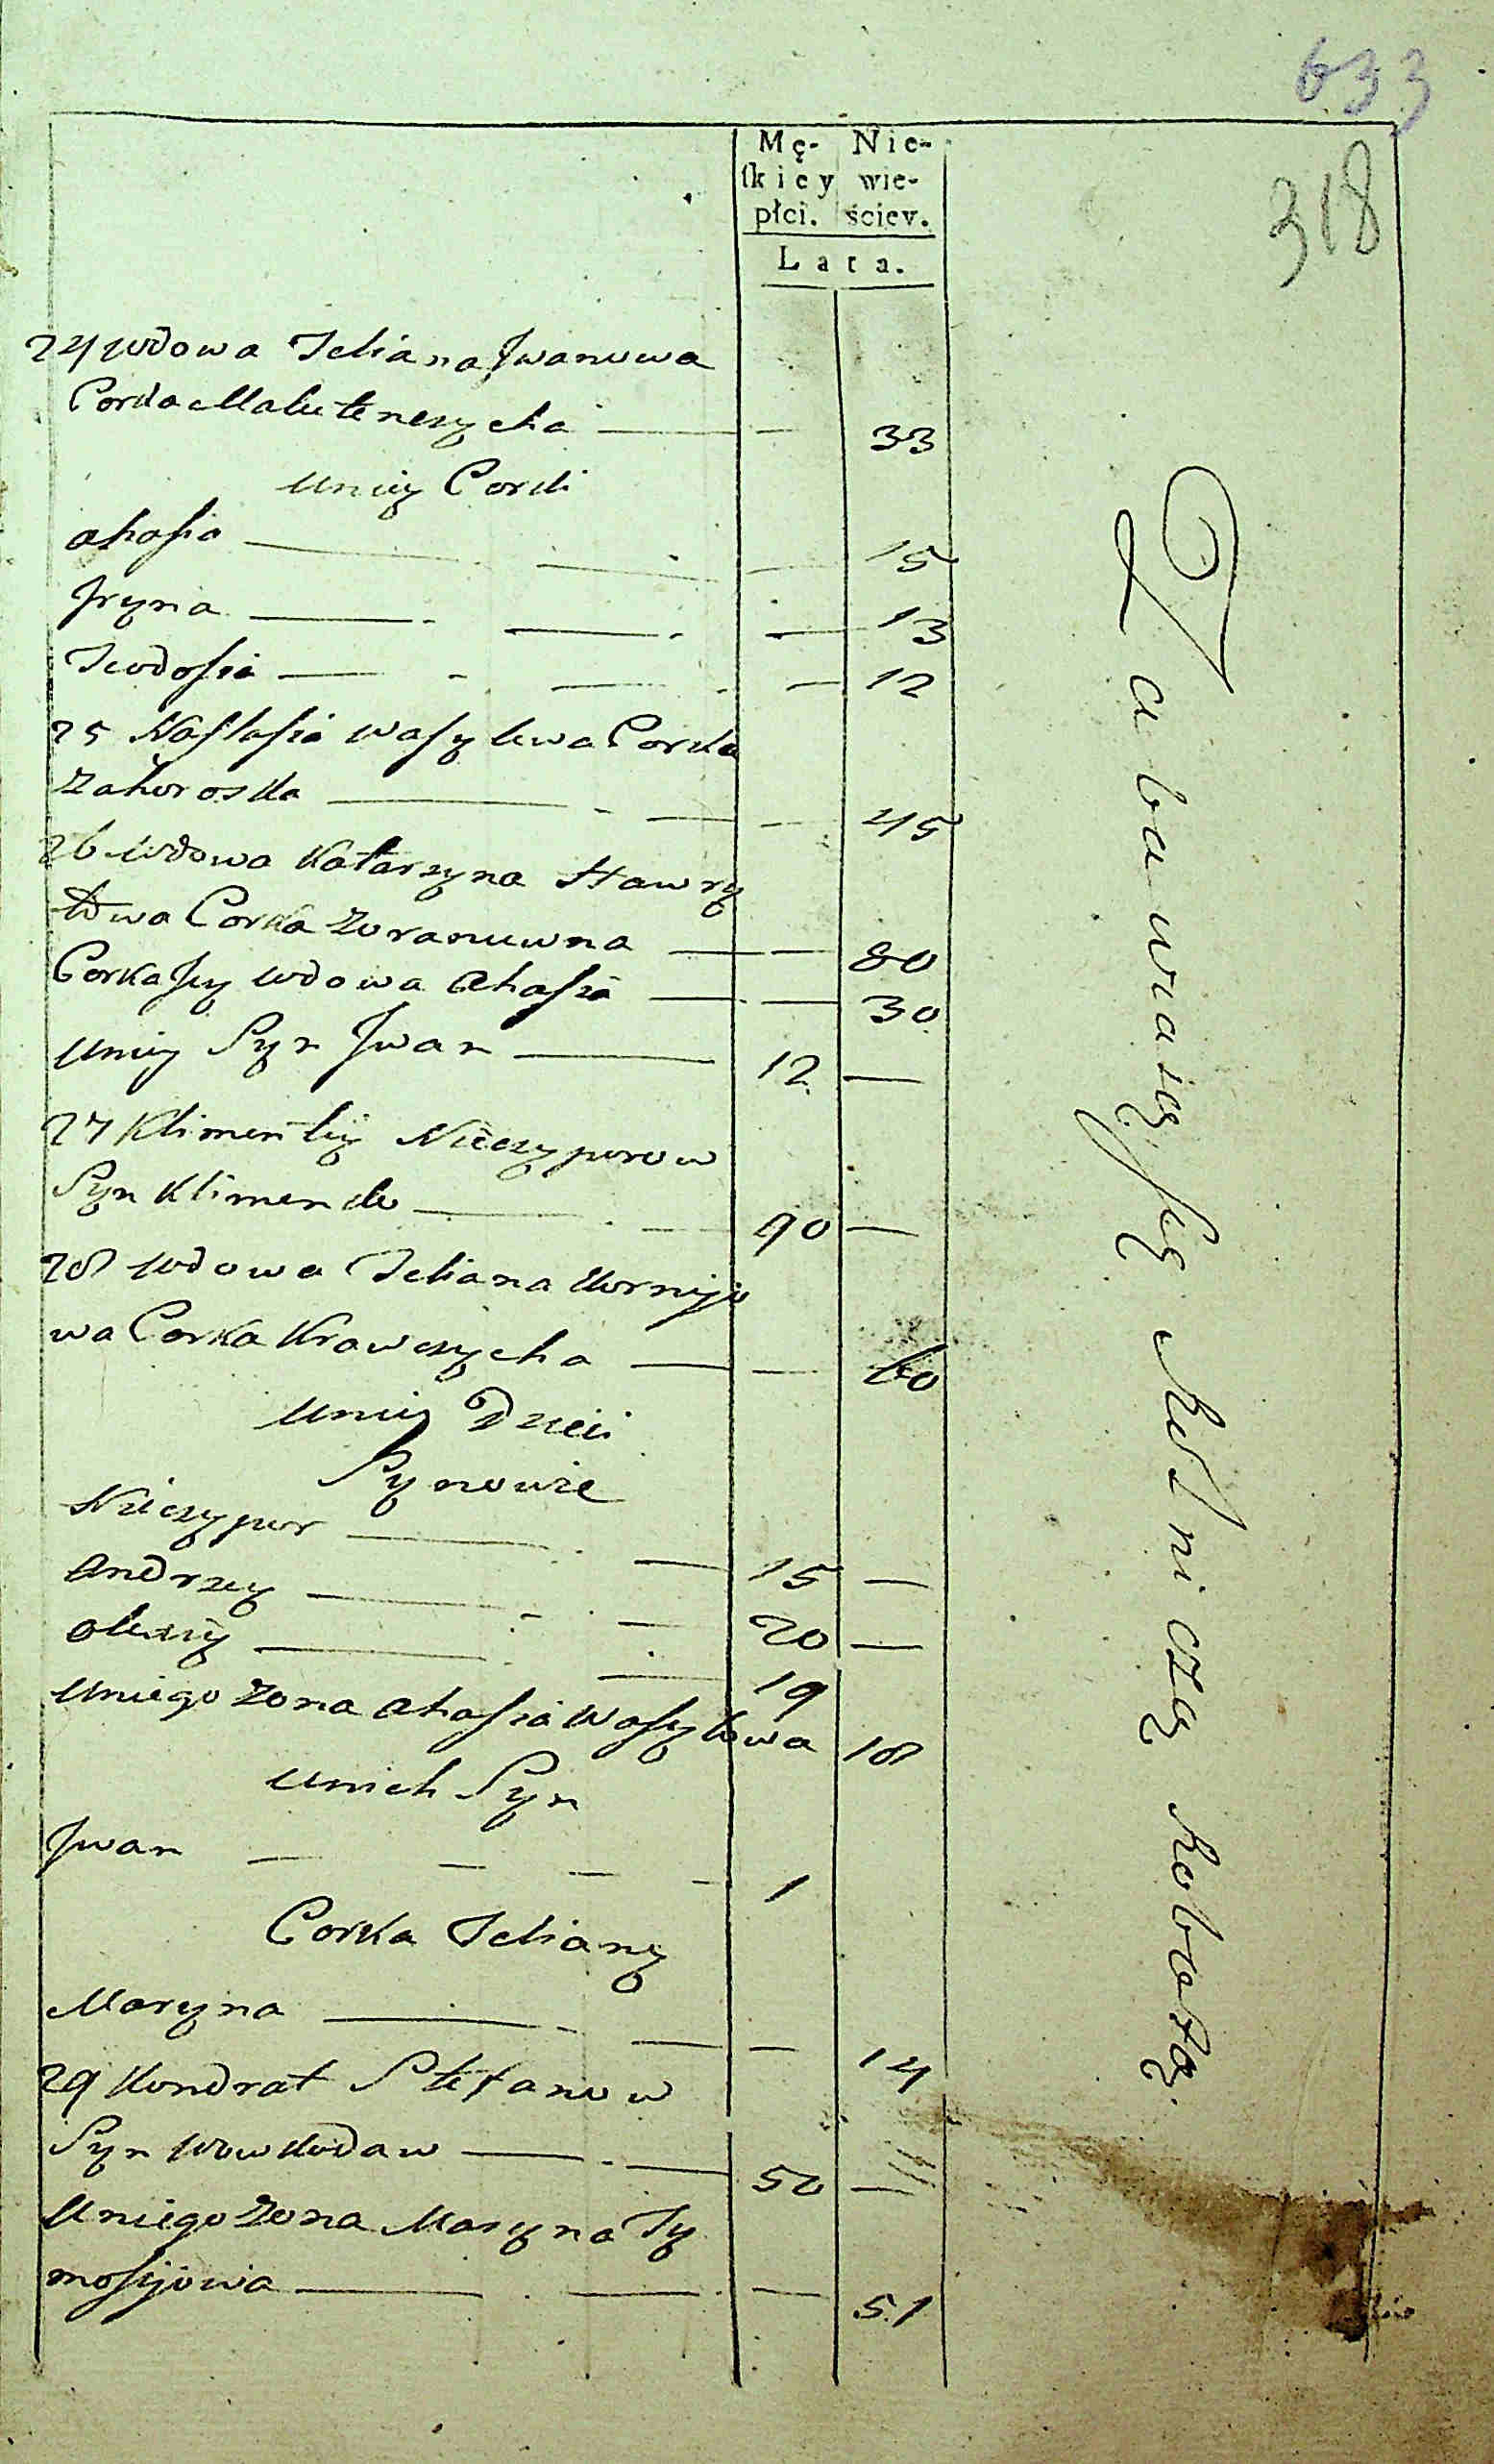 633
318
Mę- Nie-
skiey wie-
płci. ściey.
Lata.
24 wdowa Teliana Jwanowa
Corka Malutenczycha — — 33
Uniey Corki
Ahasia — — — 15
Jryna — — — 13
Teodosia — — — 12
25 Nastasia Wasylowa Corka
Zahoroska — — — 45
26 wdowa Katarzyna Hawry
łowa Corka Zoranowna — — 80
Corka Jey wdowa Ahasia — — 30
Uniey Syn Jwan — 12 —
27 Klimentiy Niczyporow
Syn Klimenko — — 90 —
28 wdowa Teliana Kornijo
wa Corka Krawczycha — — 60
Uniey Dzieci
Synowie
Niczypor — — 15 —
Andrzey — — 20 —
Olexiy — — 19
Uniego Zona Ahasia Wasylowa 18
Unich Syn
Jwan — — — — 1
Corka Teliany
Maryna — — — 14
29 Kondrat Stefanow
Syn Wowkodaw — — 50 —
Uniego Zona Maryna Ty
mosijowa — — — 51
Zabawiaią się Rolniczą Robotą.